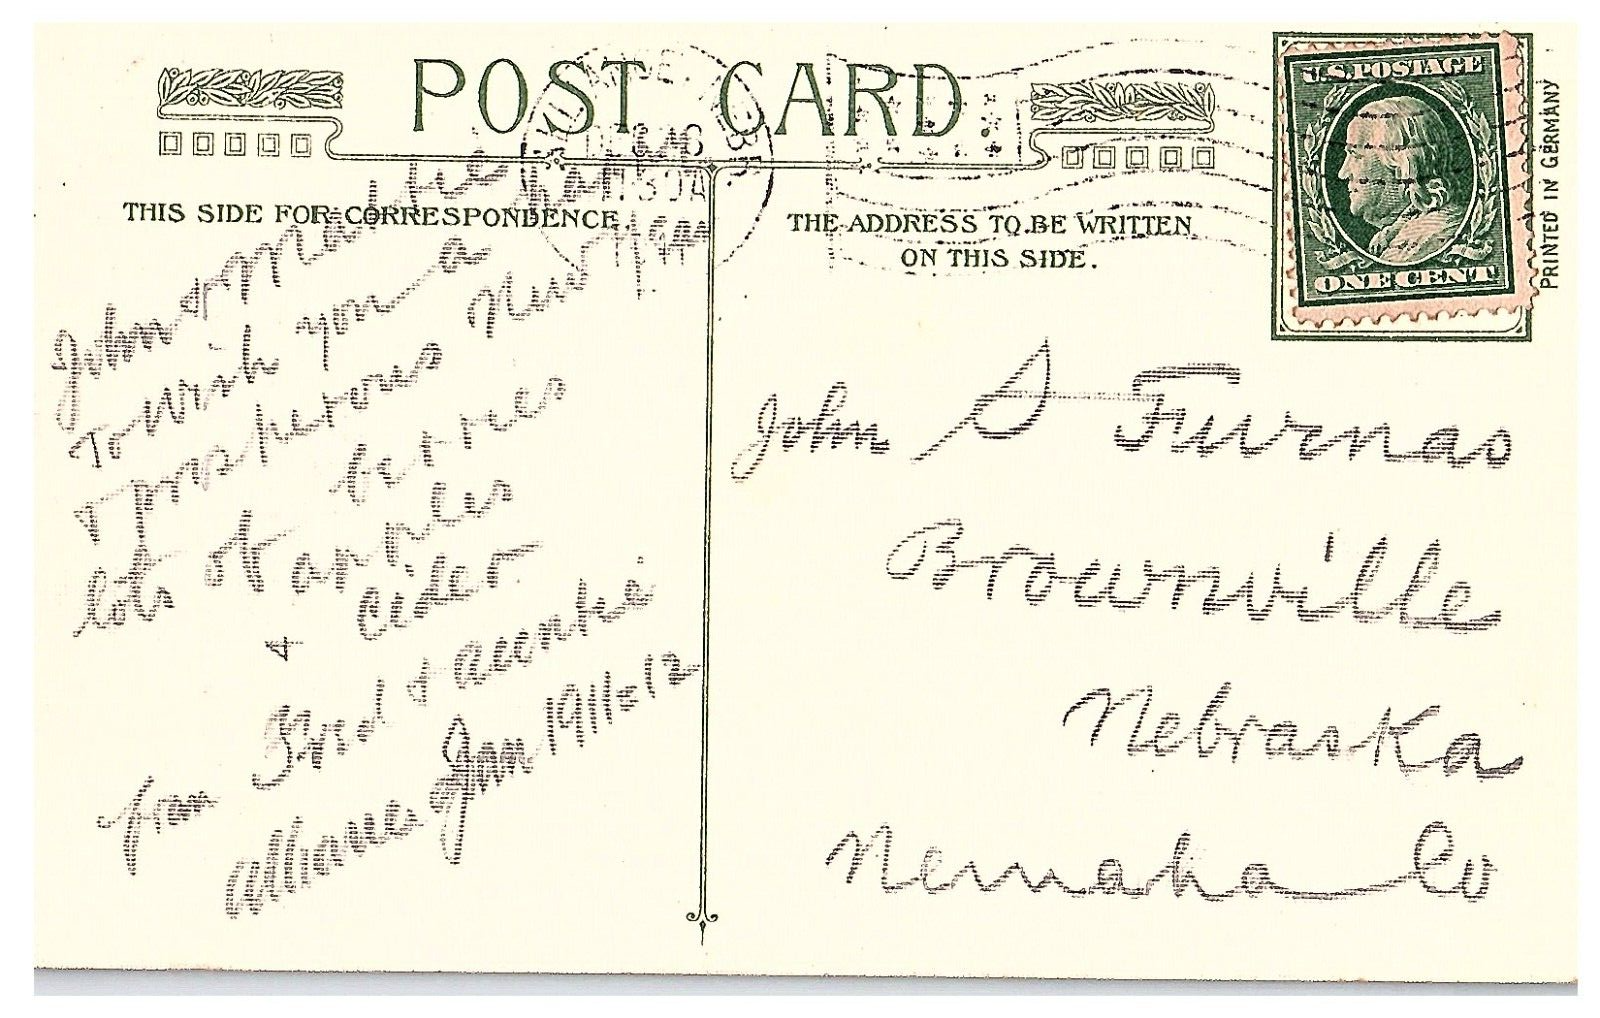 POST CARD.
THIS SIDE FOR CORRESPONDENCE.
THE ADDRESS TO BE WRITTEN
ON THIS SIDE.
U.S. POSTAGE
ONE CENT
PRINTED IN GERMANY
John & Mattie
To wish you a
Prosperous New Year
lots of berries
apples
& cider
from & auntie
Alliance Jan 1911-12
John S Furnas
Brownville
Nebraska
Nemaha Co